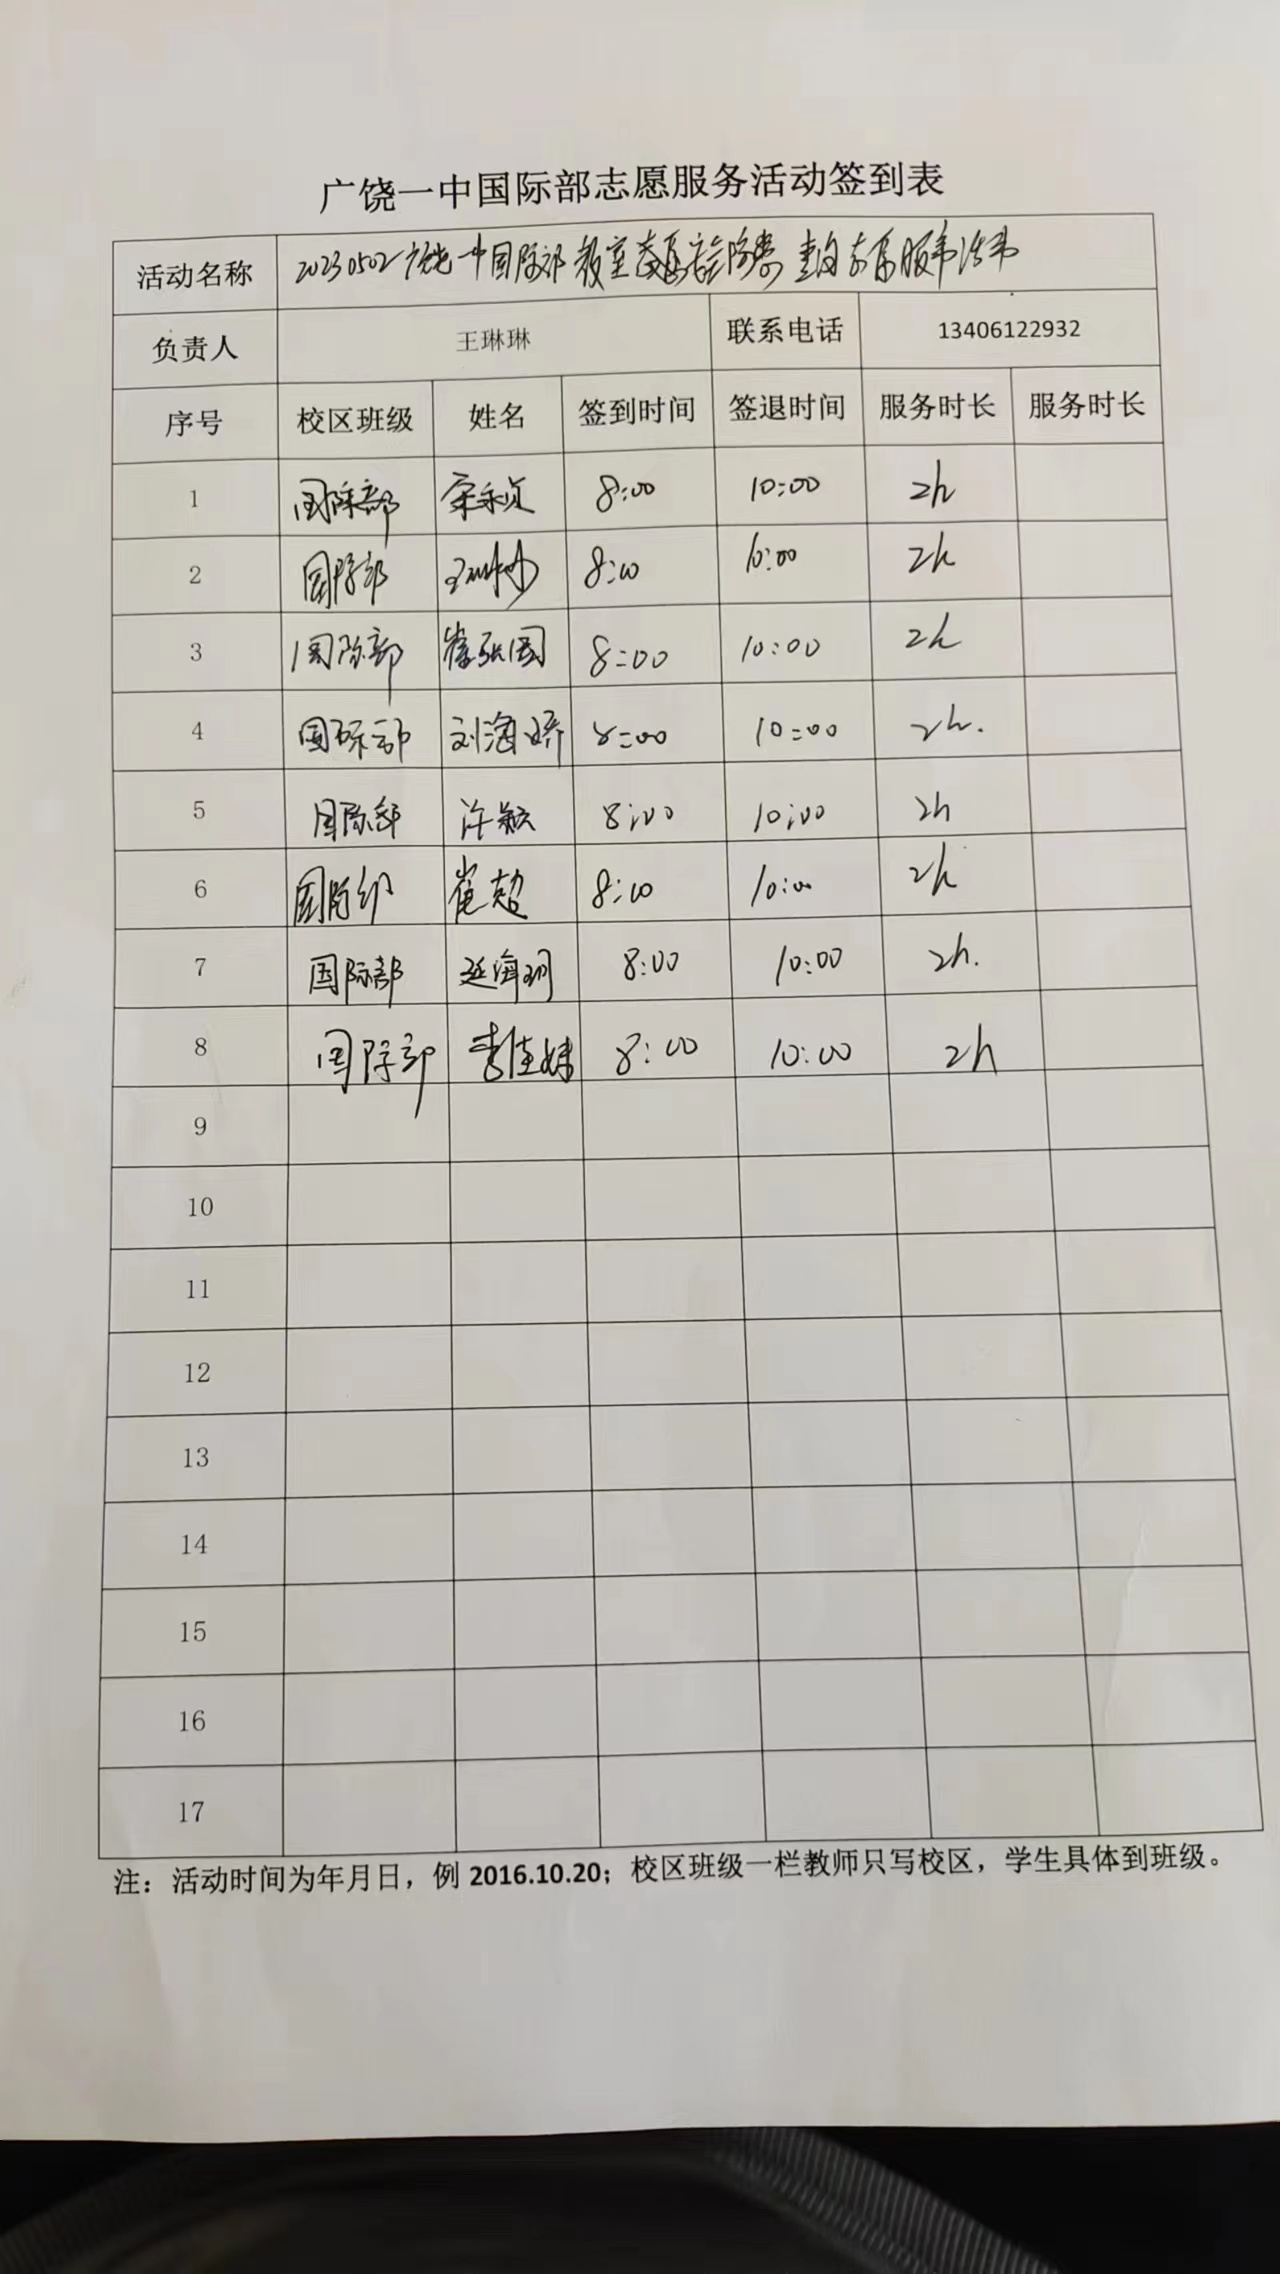 广饶一中国际部志愿服务活动签到表
活动名称 20230502广饶一中国际部教室 志愿服务活动
负责人 王琳琳 联系电话 13406122932
序号 校区班级 姓名 签到时间 签退时间 服务时长 服务时长
1 国际部 8:00 10:00 2h
2 国际部 8:00 10:00 2h
3 国际部 8:00 10:00 2h
4 国际部 刘海娇 8:00 10:00 2h.
5 国际部 许颖 8:00 10:00 2h
6 国际部 崔超 8:00 10:00 2h
7 国际部 延海珊 8:00 10:00 2h.
8 国际部 李佳妹 8:00 10:00 2h
9
10
11
12
13
14
15
16
17
注：活动时间为年月日，例 2016.10.20；校区班级一栏教师只写校区，学生具体到班级。